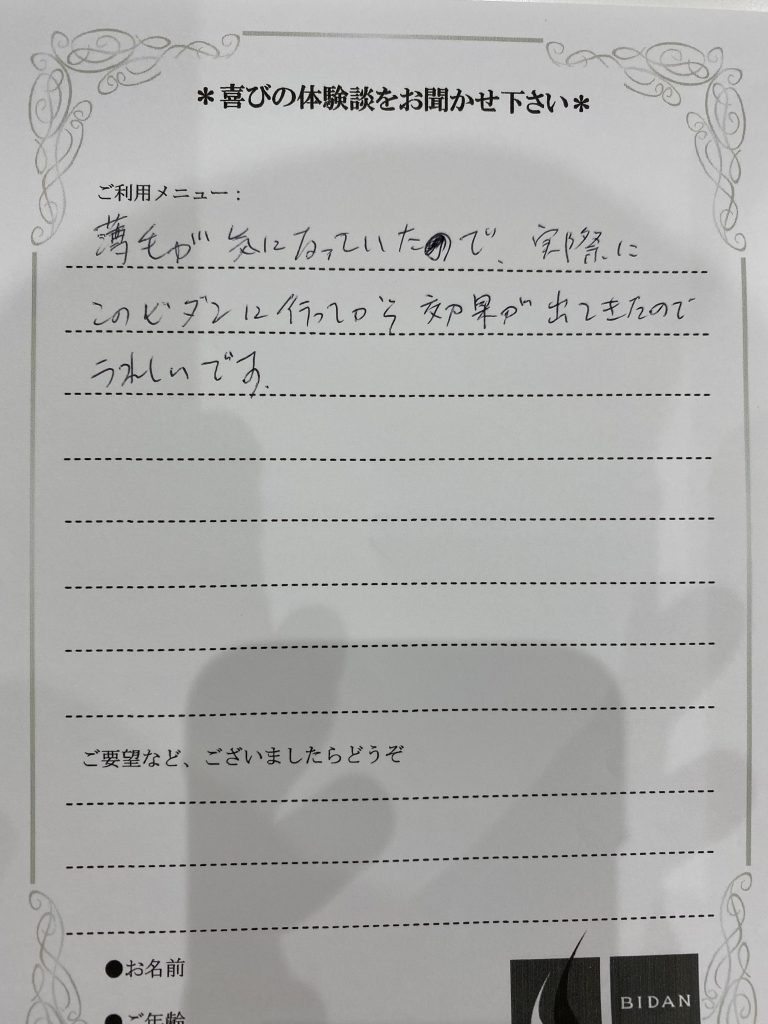 ＊喜びの体験談をお聞かせ下さい＊
ご利用メニュー：
薄毛が気になっていたので、実際に
このビダンに行ってから効果が出てきたので
うれしいです。
ご要望など、ございましたらどうぞ
●お名前
●ご年齢
BIDAN